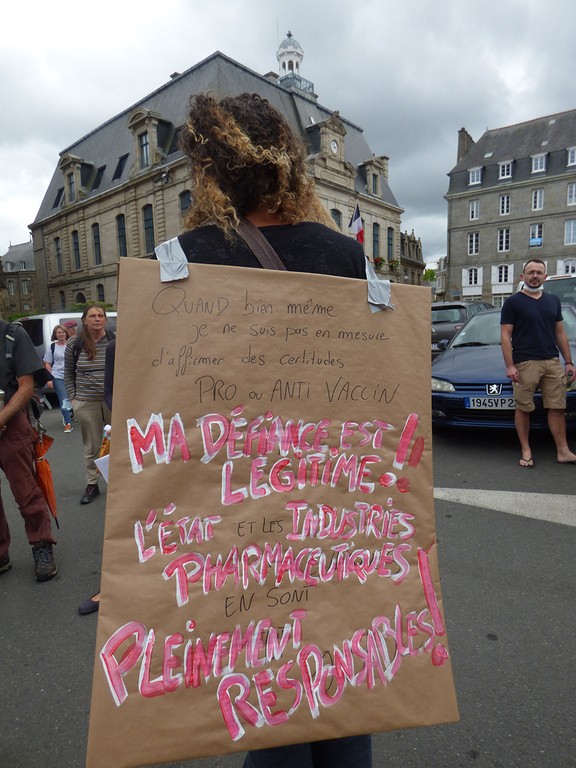 QUAND bien même
je ne suis pas en mesure
d'affirmer des certitudes
PRO ou ANTI VACCIN
MA DÉFIANCE EST
LÉGITIME !!
L'ÉTAT ET LES INDUSTRIES
PHARMACEUTIQUES
EN SONT
PLEINEMENT
RESPONSABLES !